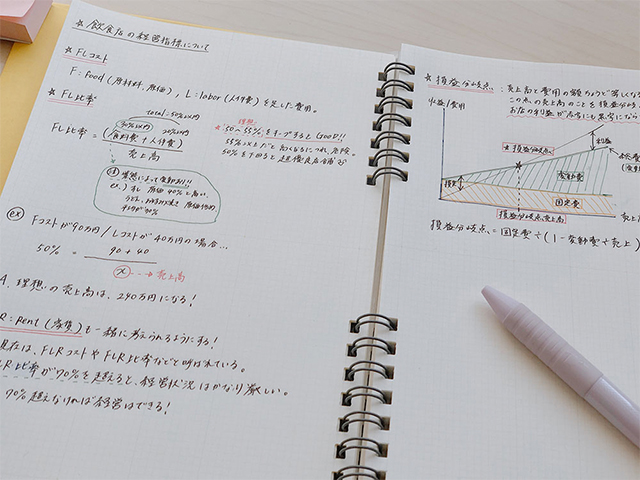 ☆ 飲食店の経営指標について
☆ FLコスト
F:food(原材料,原価), L=labor(人件費)を足した費用。
☆ FL比率
total=50%以内
30%以内 20%以内
FL比率=(食材費+人件費)
売上高
理想
50〜55%をキープするとGOOD!!
50%を下回ると超優良店舗
業態によって変動あり!!
ex) Fコストが90万円/Lコストが40万円の場合…
50% = 90+40
x …→ 売上高
A. 理想の売上高は、240万円になる!
R:Rent(家賃)も一緒に考えられるようにする!
現在は、FLRコストやFLR比率などと呼ばれている。
FLR比率が70%を超えると、経営状況はかなり厳しい。
70%超えなければ経営はできる!
☆ 損益分岐点:売上高と費用の額がちょうど等しくな
この点の売上高のことを損益分岐
収益/費用
利益
☆損益分岐点
変動費
損失
固定費
売上
損益分岐点売上高
損益分岐点=固定費÷(1−変動費÷売上